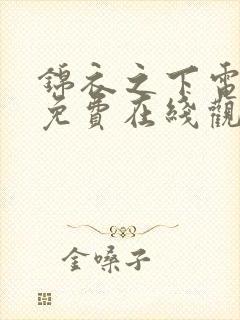 錦衣之下電
免費在綫觀
金嗓子